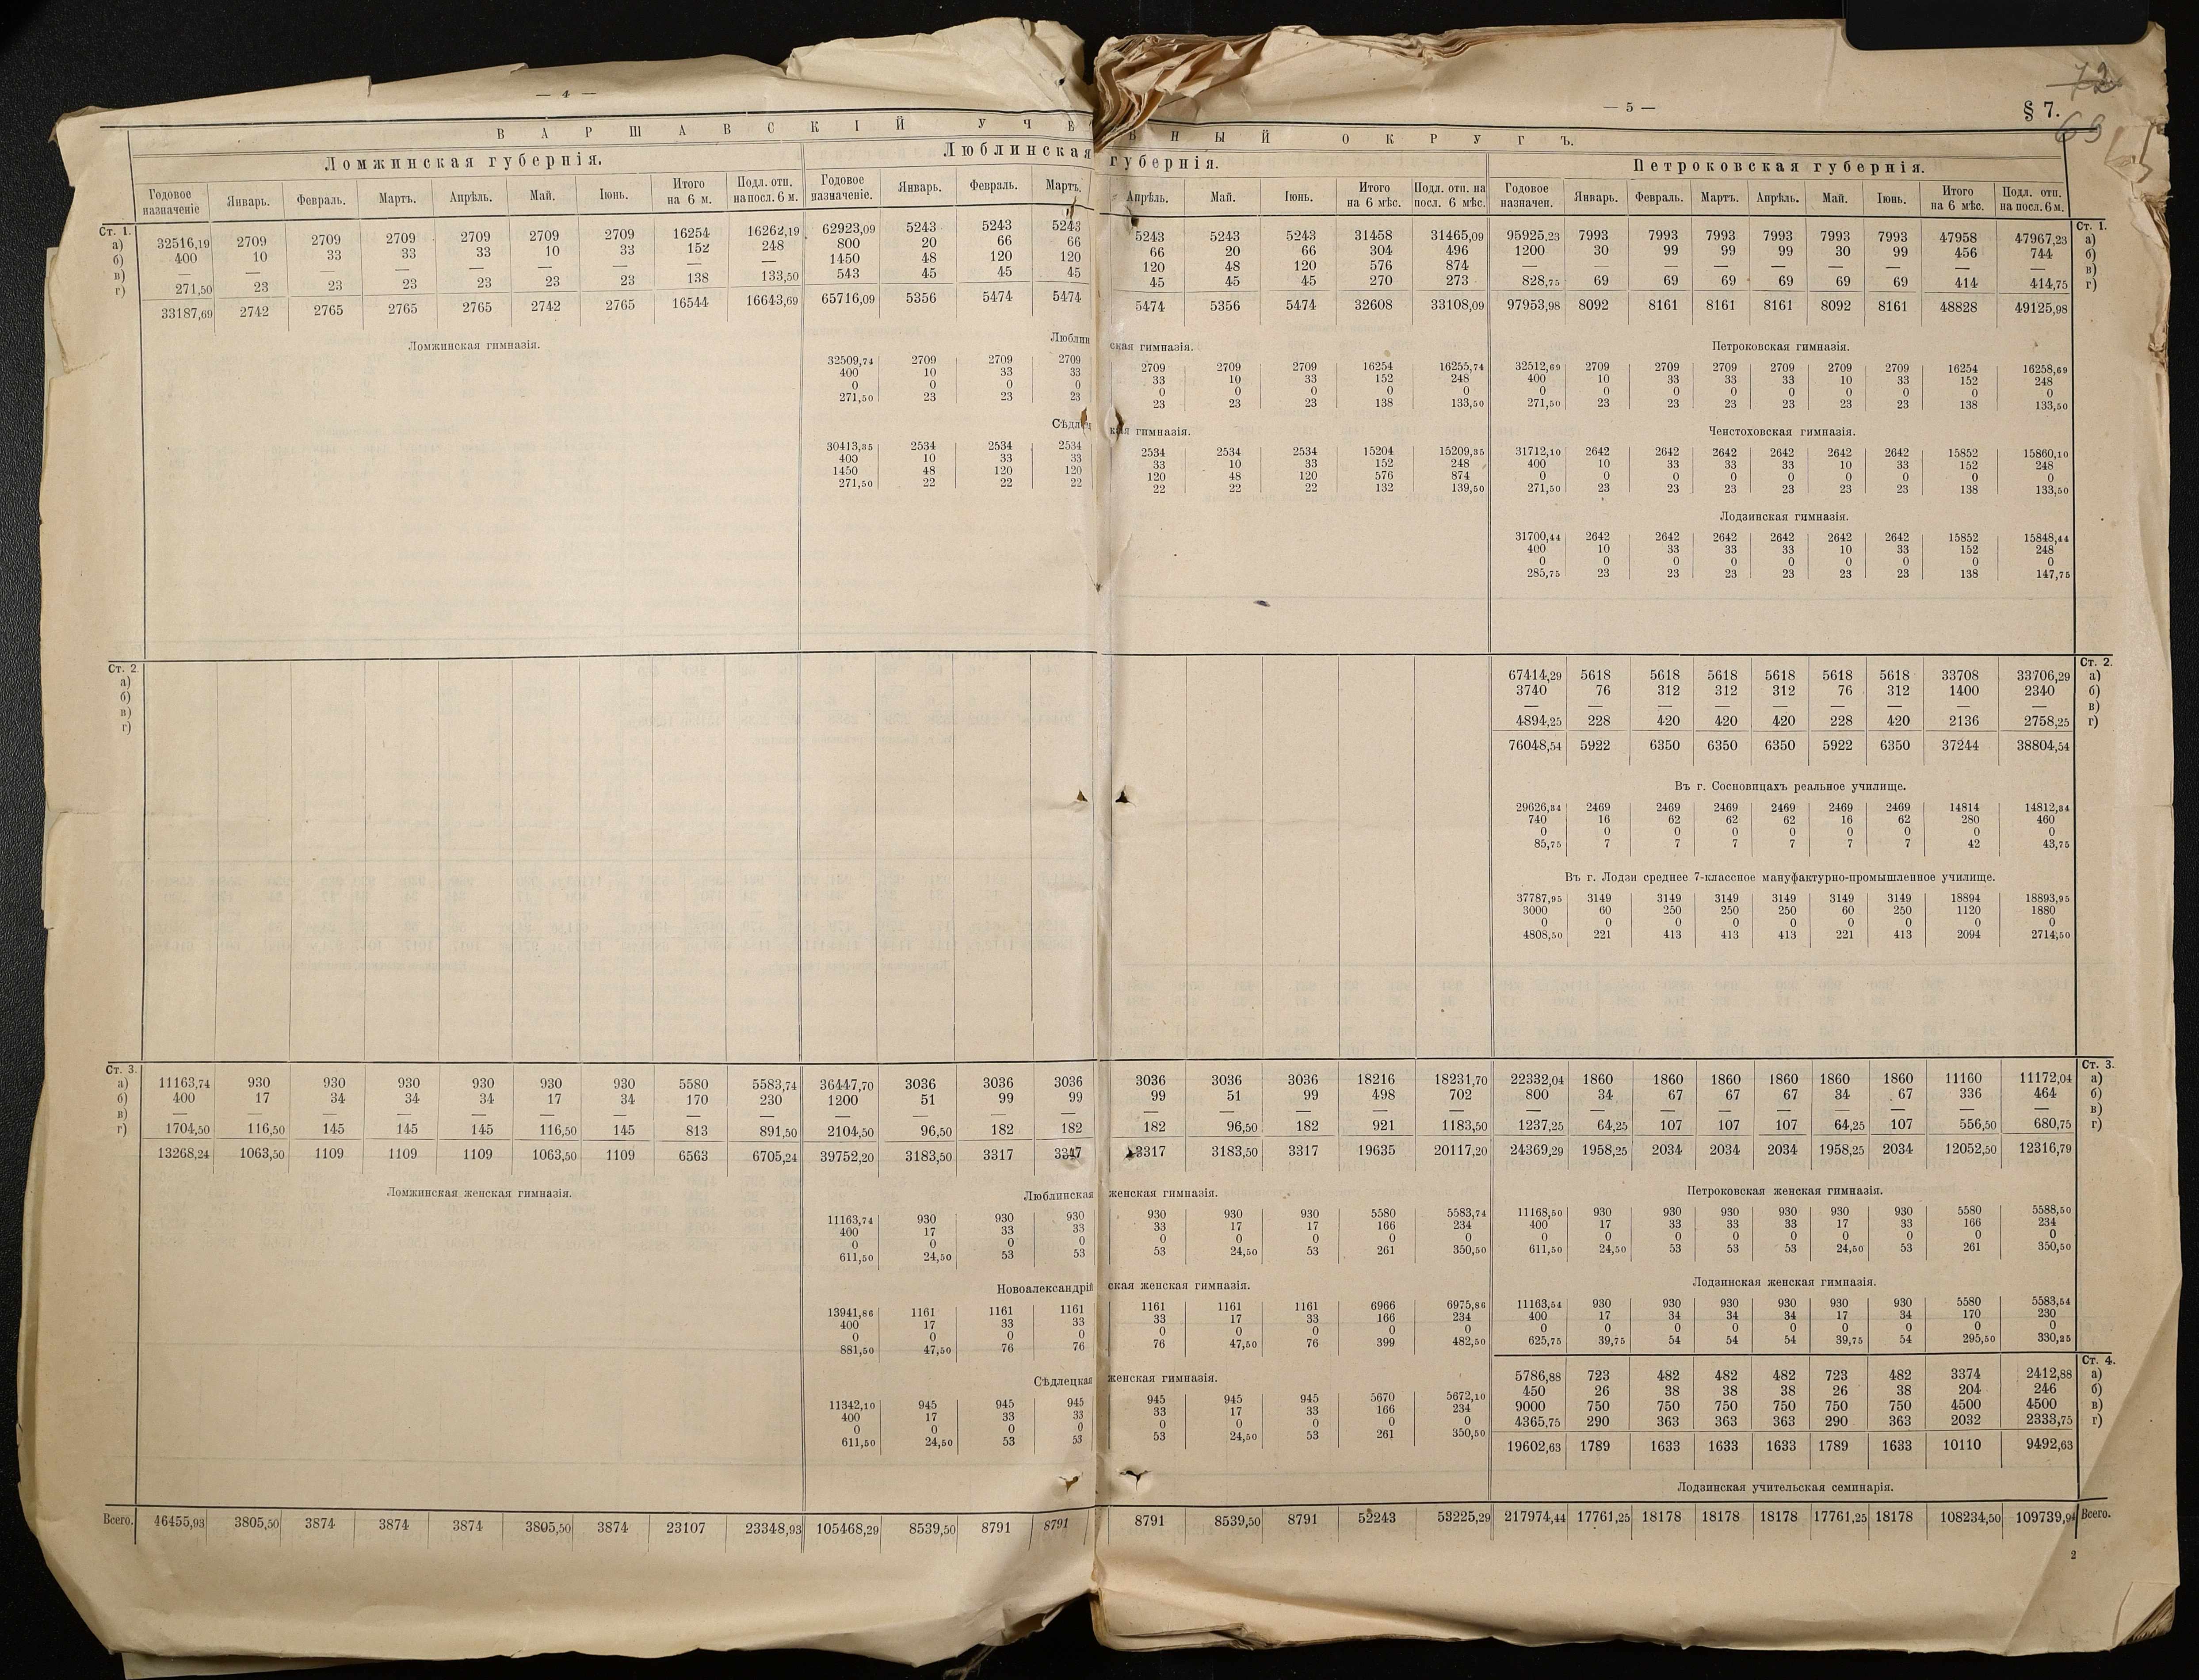 — 4 —
ВАРШАВСКІЙ УЧЕ
Ломжинская губернія. Люблинская
Годовое назначеніе Январь. Февраль. Мартъ. Апрѣль. Май. Іюнь. Итого на 6 м. Подл. отп. на посл. 6 м. Годовое назначеніе. Январь. Февраль. Мартъ.
Ст. 1.
а) 32516,19 2709 2709 2709 2709 2709 2709 16254 16262,19 62923,09 5243 5243 5243
б) 400 10 33 33 33 10 33 152 248 800 20 66 66
в) — — — — — — — — — 1450 48 120 120
г) 271,50 23 23 23 23 23 23 138 133,50 543 45 45 45
33187,69 2742 2765 2765 2765 2742 2765 16544 16643,69 65716,09 5356 5474 5474
Ломжинская гимназія. Люблин
32509,74 2709 2709 2709
400 10 33 33
0 0 0 0
271,50 23 23 23
Сѣдлец
30413,35 2534 2534 2534
400 10 33 33
1450 48 120 120
271,50 22 22 22
Ст. 2
а)
б)
в)
г)
Ст. 3.
а) 11163,74 930 930 930 930 930 930 5580 5583,74 36447,70 3036 3036 3036
б) 400 17 34 34 34 17 34 170 230 1200 51 99 99
в) — — — — — — — — — — — — —
г) 1704,50 116,50 145 145 145 116,50 145 813 891,50 2104,50 96,50 182 182
13268,24 1063,50 1109 1109 1109 1063,50 1109 6563 6705,24 39752,20 3183,50 3317 3347
Ломжинская женская гимназія. Люблинская
11163,74 930 930 930
400 17 33 33
0 0 0 0
611,50 24,50 53 53
Новоалександрій
13941,86 1161 1161 1161
400 17 33 33
0 0 0 0
881,50 47,50 76 76
Сѣдлецкая
11342,10 945 945 945
400 17 33 33
0 0 0 0
611,50 24,50 53 53
Всего. 46455,93 3805,50 3874 3874 3874 3805,50 3874 23107 23348,93 105468,29 8539,50 8791 8791
— 5 —
§ 7.
72
69
БНЫЙ ОКРУГЪ.
губернія. Петроковская губернія.
Апрѣль. Май. Іюнь. Итого на 6 мѣс. Подл. отп. на посл. 6 мѣс. Годовое назначен. Январь. Февраль. Мартъ. Апрѣль. Май. Іюнь. Итого на 6 мѣс. Подл. отп. на посл. 6 м.
Ст. 1.
5243 5243 5243 31458 31465,09 95925,23 7993 7993 7993 7993 7993 7993 47958 47967,23 а)
66 20 66 304 496 1200 30 99 99 99 30 99 456 744 б)
120 48 120 576 874 — — — — — — — — — в)
45 45 45 270 273 828,75 69 69 69 69 69 69 414 414,75 г)
5474 5356 5474 32608 33108,09 97953,98 8092 8161 8161 8161 8092 8161 48828 49125,98
ская гимназія. Петроковская гимназія.
2709 2709 2709 16254 16255,74 32512,69 2709 2709 2709 2709 2709 2709 16254 16258,69
33 10 33 152 248 400 10 33 33 33 10 33 152 248
0 0 0 0 0 0 0 0 0 0 0 0 0 0
23 23 23 138 133,50 271,50 23 23 23 23 23 23 138 133,50
кая гимназія. Ченстоховская гимназія.
2534 2534 2534 15204 15209,35 31712,10 2642 2642 2642 2642 2642 2642 15852 15860,10
33 10 33 152 248 400 10 33 33 33 10 33 152 248
120 48 120 576 874 0 0 0 0 0 0 0 0 0
22 22 22 132 139,50 271,50 23 23 23 23 23 23 138 133,50
Лодзинская гимназія.
31700,44 2642 2642 2642 2642 2642 2642 15852 15848,44
400 10 33 33 33 10 33 152 248
0 0 0 0 0 0 0 0 0
285,75 23 23 23 23 23 23 138 147,75
Ст. 2.
67414,29 5618 5618 5618 5618 5618 5618 33708 33706,29 а)
3740 76 312 312 312 76 312 1400 2340 б)
— — — — — — — — — в)
4894,25 228 420 420 420 228 420 2136 2758,25 г)
76048,54 5922 6350 6350 6350 5922 6350 37244 38804,54
Въ г. Сосновицахъ реальное училище.
29626,34 2469 2469 2469 2469 2469 2469 14814 14812,34
740 16 62 62 62 16 62 280 460
0 0 0 0 0 0 0 0 0
85,75 7 7 7 7 7 7 42 43,75
Въ г. Лодзи среднее 7-классное мануфактурно-промышленное училище.
37787,95 3149 3149 3149 3149 3149 3149 18894 18893,95
3000 60 250 250 250 60 250 1120 1880
0 0 0 0 0 0 0 0 0
4808,50 221 413 413 413 221 413 2094 2714,50
Ст. 3.
3036 3036 3036 18216 18231,70 22332,04 1860 1860 1860 1860 1860 1860 11160 11172,04 а)
99 51 99 498 702 800 34 67 67 67 34 67 336 464 б)
— — — — — — — — — — — — — — в)
182 96,50 182 921 1183,50 1237,25 64,25 107 107 107 64,25 107 556,50 680,75 г)
3317 3183,50 3317 19635 20117,20 24369,29 1958,25 2034 2034 2034 1958,25 2034 12052,50 12316,79
женская гимназія. Петроковская женская гимназія.
930 930 930 5580 5583,74 11168,50 930 930 930 930 930 930 5580 5588,50
33 17 17 166 234 400 17 33 33 33 17 33 166 234
0 0 0 0 0 0 0 0 0 0 0 0 0 0
53 24,50 53 261 350,50 611,50 24,50 53 53 53 24,50 53 261 350,50
ская женская гимназія. Лодзинская женская гимназія.
1161 1161 1161 6966 6975,86 11163,54 930 930 930 930 930 930 5580 5583,54
33 17 33 166 234 400 17 34 34 34 17 34 170 230
0 0 0 0 0 0 0 0 0 0 0 0 0 0
76 47,50 76 399 482,50 625,75 39,75 54 54 54 39,75 54 295,50 330,25
Ст. 4.
женская гимназія. 5786,88 723 482 482 482 723 482 3374 2412,88 а)
945 945 945 5670 5672,10 450 26 38 38 38 26 38 204 246 б)
33 17 33 166 234 9000 750 750 750 750 750 750 4500 4500 в)
0 0 0 0 0 4365,75 290 363 363 363 290 363 2032 2333,75 г)
53 24,50 53 261 350,50 19602,63 1789 1633 1633 1633 1789 1633 10110 9492,63
Лодзинская учительская семинарія.
8791 8539,50 8791 52243 53225,29 217974,44 17761,25 18178 18178 18178 17761,25 18178 108234,50 109739,94 Всего.
2